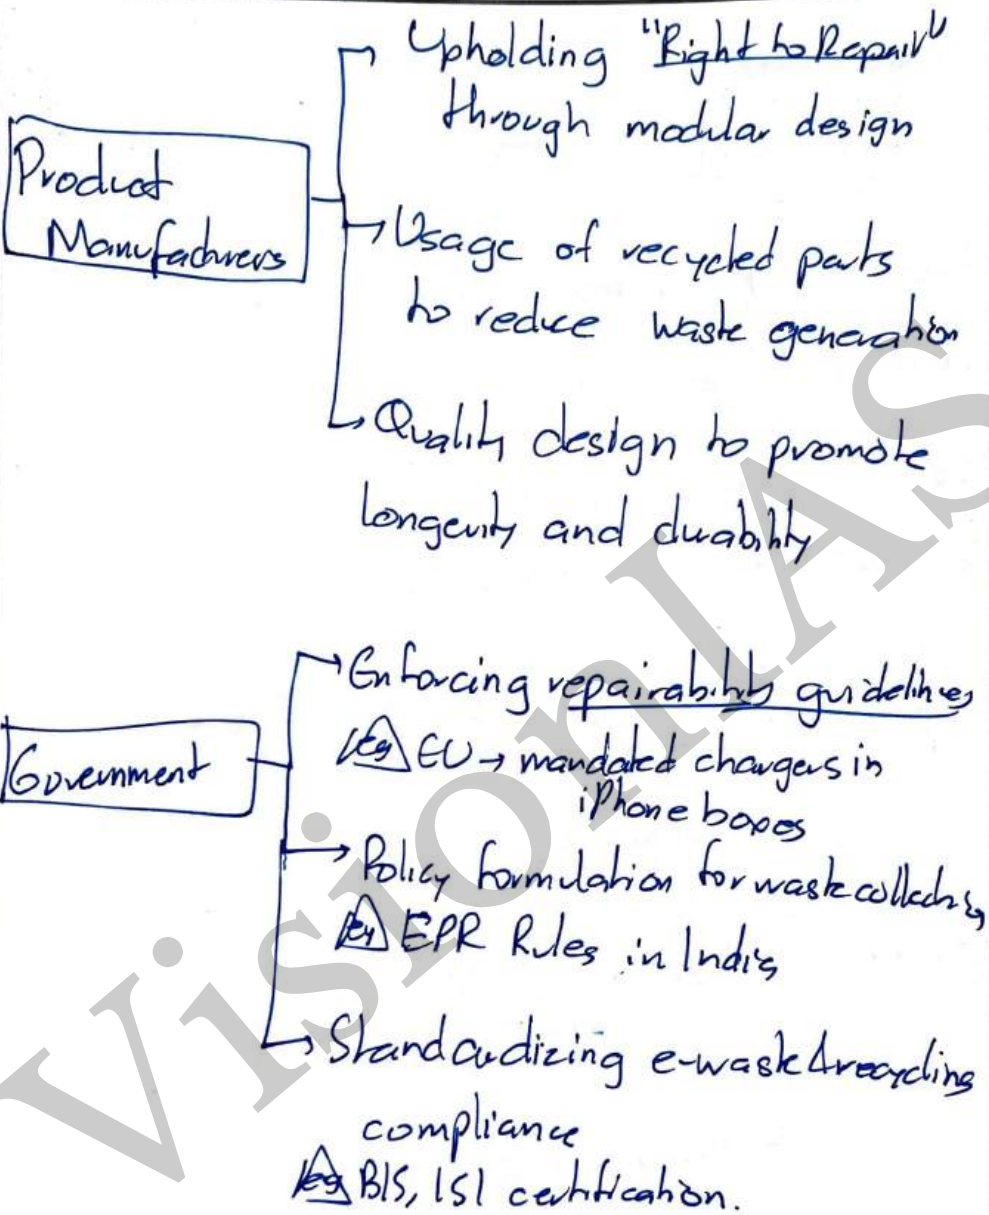 Upholding "Right to Repair"
through modular design
Product
Manufacturers
Usage of recycled parts
to reduce waste generation
Quality design to promote
longevity and durability
Enforcing repairability guidelines
eg EU → mandated chargers in
iPhone boxes
Government
Policy formulation for waste collection,
eg EPR Rules in India
Standardizing e-waste & recycling
compliance
eg BIS, ISI certification.
VisionIAS